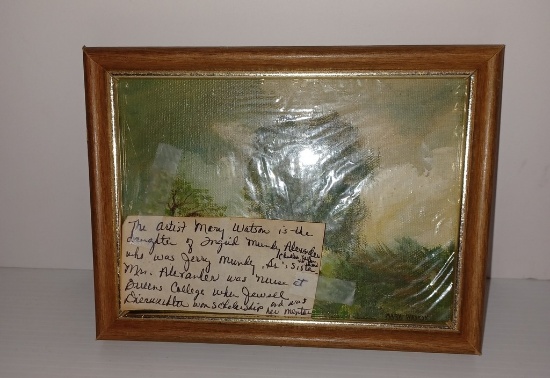 The artist Mary Watson is the
daughter of Ingrid Mundy Alexander
who was Jerry Mundy, Sr's Sister
Mrs. Alexander was nurse at
Queens College when Jewell
won scholarship and was
her mentor